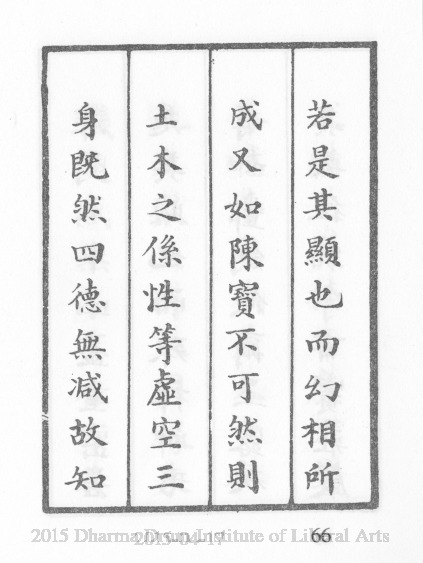 若是其顯也而幻相所
成又如陳寶不可然則
土木之係性等虛空三
身既然四德無減故知
2015 Dharma Drum Institute of Liberal Arts
2015-04-17
66